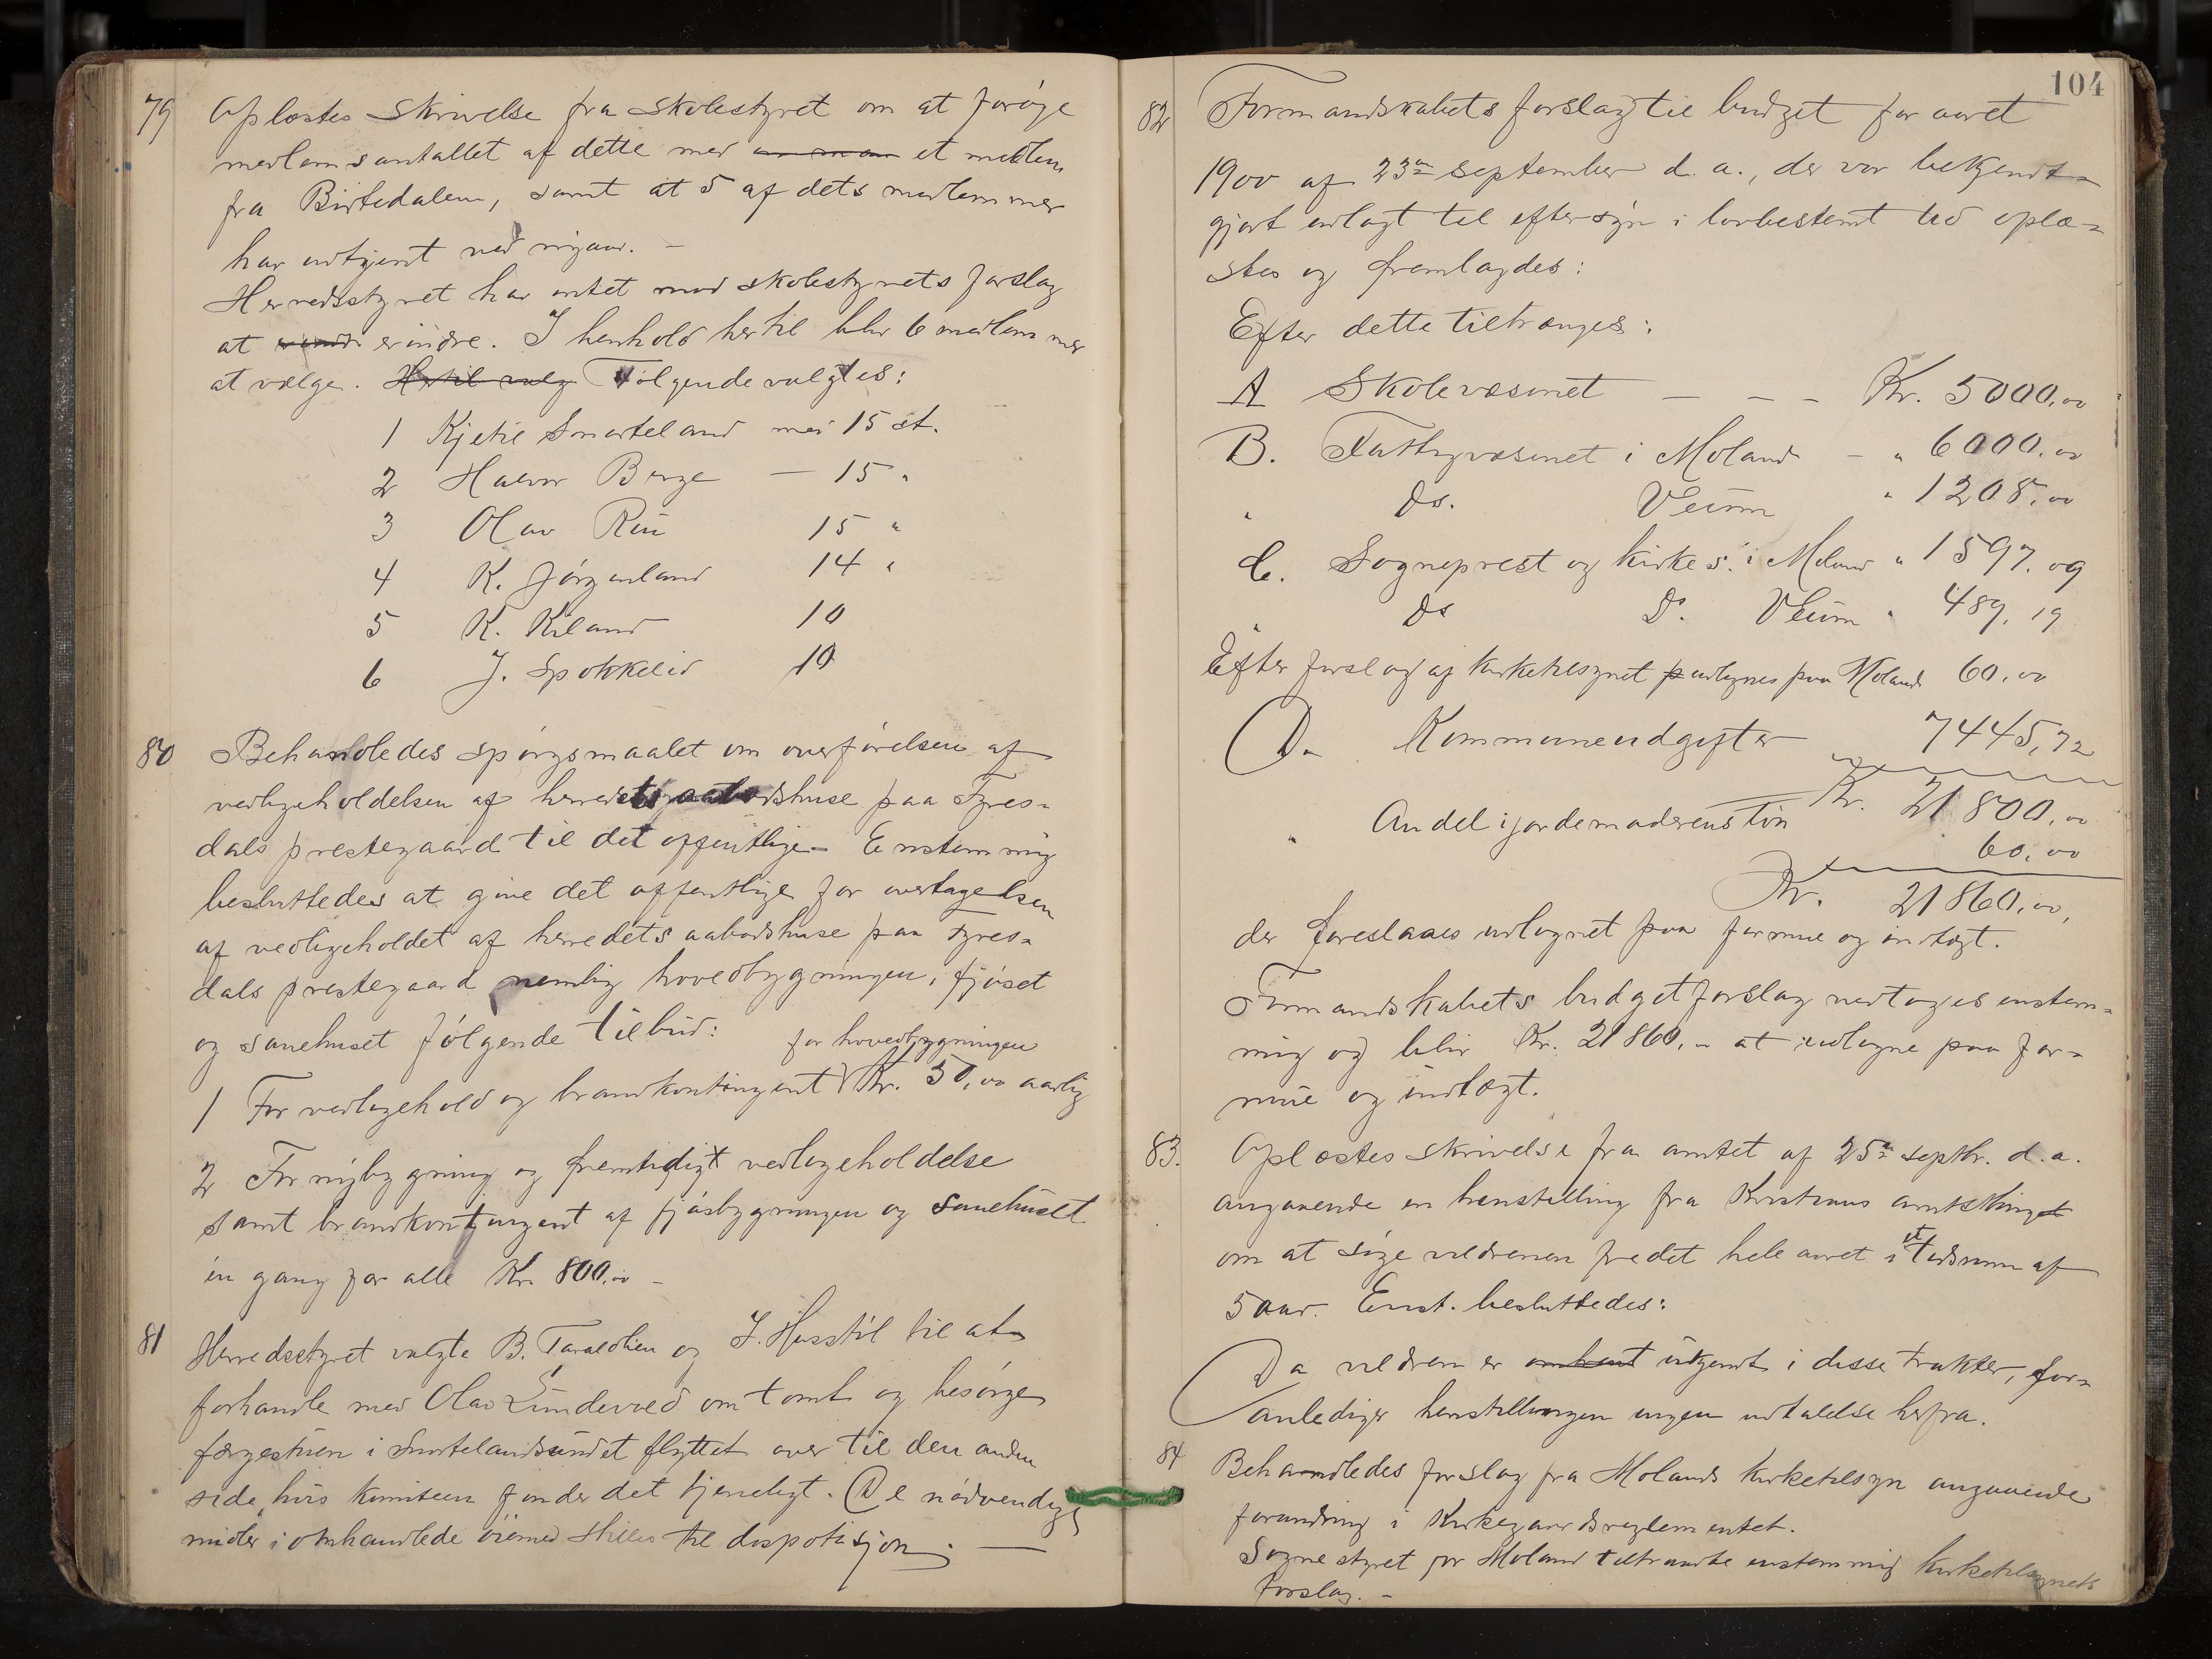 79 Oplæstes skrivelse fra skolestyret om at forøge
medlemsantallet af dette med et medlem
fra Birtedalen, samt at 5 af dets medlemmer
har udtjent ved nyaar. —
Herredsstyret har intet mod skolestyrets forslag
at erindre. I henhold hertil blir 6 medlemmer
at vælge. Hertil valg Følgende valgtes:
1 Kjetil Smorteland med 15 st.
2 Halvor Berge — 15 "
3 Olav Rui 15 "
4 K. Jørgenland 14 "
5 K. Kiland 10
6 J. Spokkelid 10
80 Behandledes spørgsmaalet om overførelsen af
vedligeholdelsen af herredets aabodshuse paa Fyres-
dals prestegaard til det offentlige. Enstemmig
besluttedes at give det offentlige for overtagelsen
af vedligeholdet af herredets aabodshuse paa Fyres-
dals prestegaard nemlig hovedbygningen, fjøset
og sauehuset følgende tilbud:
for hovedbygningen
1 For vedligehold og brandkontingent Kr. 50,00 aarlig
2 For nybygning og fremtidigt vedligeholdelse
samt brandkontingent af fjøsbygningen og sauehuset
én gang for alle Kr. 800,00 –
81 Herredsstyret valgte B. Taraldlien og J. Husstøl til at
forhandle med Olav Lundevold om tomt og besørge
færgestuen i Smortelandsundet flyttet over til den anden
side, hvis komiteen finder det tjeneligt. De nødvendige
midler i omhandlede øiemed stilles til disposisjon. —
104
82 Formandskabets forslag til budget for aaret
1900 af 23de september d. a., der var bekjendt-
gjort udlagt til eftersyn i lovbestemt tid oplæ-
stes og fremlagdes:
Efter dette tiltrænges:
A Skolevæsenet — – – Kr. 5000,00
B. Fattigvæsenet i Moland – " 6000,00
" Do. Veum " 1208,00
C. Sogneprest og kirkes. i Moland " 1597,09
" Do Do. Veum " 489,19
Efter forslag af kirketilsynet udlignes paa Moland 60,00
D. Kommuneudgifter 7445,72
Kr. 21800,00
" Andel i jordemoderens løn 60,00
Kr. 21860,00,
der foreslaaes udlignet paa formue og indtægt.
Formandskabets budgetforslag vedtoges enstem-
mig og blir Kr. 21860,00 at udligne paa for-
mue og indtægt.
83. Oplæstes skrivelse fra amtet af 25de septbr. d. a.
angaaende en henstilling fra Kristians amtsthing
om at søge vildrenen fredet hele aaret i et tidsrum af
5 aar. Enst. besluttedes:
Da vildren er ukjendt i disse trakter, for-
anlediger henstillingen ingen udtalelse herfra.
84 Behandledes forslag fra Molands kirketilsyn angaaende
forandring i kirkegaardsreglementet.
Sognestyret for Moland tiltraadte enstemmig kirketilsynets
forslag. –